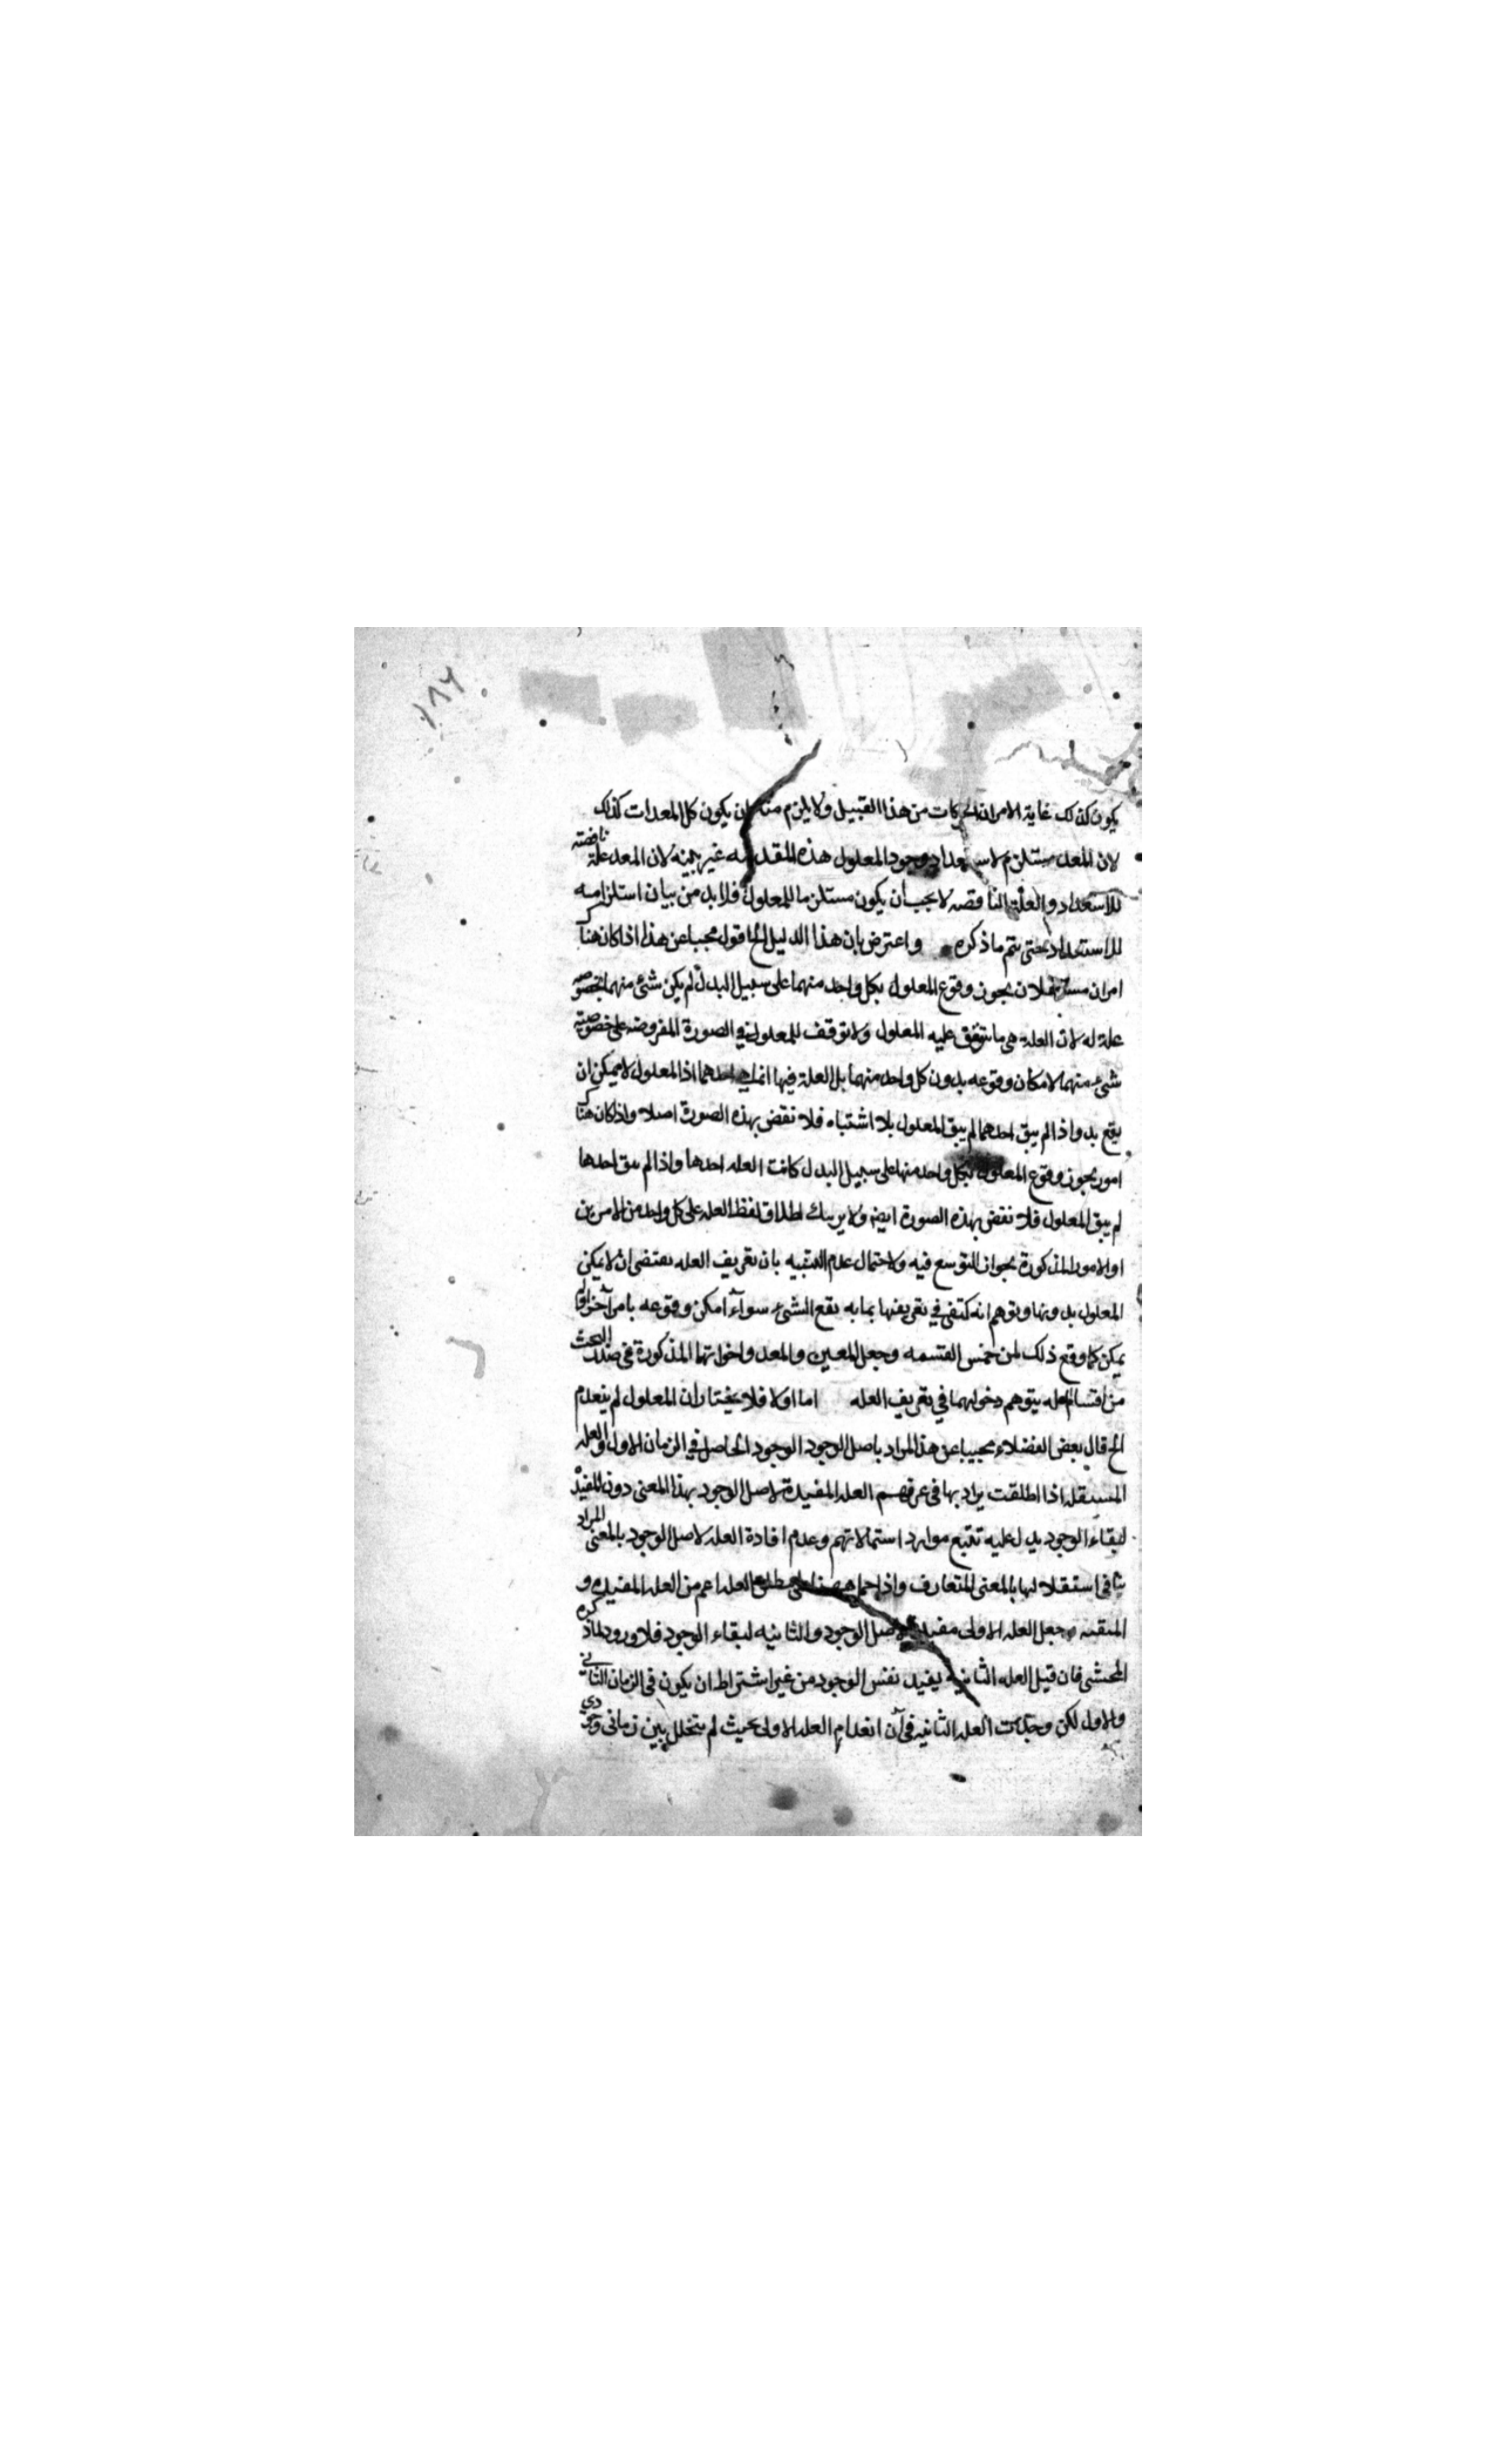 ١٨٦
يكون كذلك غاية الامر ان الحركات من هذا القبيل ولا يلزم منه ان يكون كل المعدات كذلك
لان المعد مستلزم لاستعداد وجود المعلول هذه المقدمه غير بينه لان المعد علة ناقصته
للاستعداد والعلة الناقصه لا يجب ان يكون مستلزما للمعلول فلا بد من بيان استلزامه
للاستعداد حتى يتم ما ذكره واعترض بان هذا الدليل الخ اقول مجيبا عن هذا اذا كان هناك
امران مستقلان يجوز وقوع المعلول بكل واحد منهما على سبيل البدل لم يكن شئ منهما بخصوصه
علة له لان العلة هي ما يتوقف عليه المعلول ولا توقف للمعلول في الصورة المفروضه على خصوصيته
شئ منهما لامكان وقوعه بدون كل واحد منهما بل العلة فيها انما هي احدهما اذ المعلول لا يمكن ان
يقع بد واذا لم يبق احدهما لم يبق المعلول بلا اشتباه فلا نقض بهذه الصورة اصلا واذا كان هناك
امور يجوز وقوع المعلول بكل واحد منها على سبيل البدل كانت العله احدها واذا لم يبق احدها
لم يبق المعلول فلا نقض بهذه الصورة ايضا ولا يريبك اطلاق لفظ العله على كل واحد من الامرين
او الامور المذكورة بجواز التوسع فيه ولاحتمال عدم التنبيه بان تعريف العله يقتضى ان لا يمكن
المعلول بدونها وتوهم انه كتفى في تعريفها بما به يقع الشئ سواء امكن وقوعه بامر آخر او لا
يمكن كما وقع ذلك لمن خمس القسمه وجعل المعين والمعد واخواتهما المذكورة في صدد البحث
من اقسام العله بتوهم دخولهما في تعريف العله اما اولا فلا يختار ان المعلول لم ينعدم
الخ قال بعض الفضلاء مجيبا عن هذا المراد باصل الوجود الوجود الحاصل في الزمان الاول والعله
المستقله اذا اطلقت يراد بها في عرفهم العله المفيدة لاصل الوجود بهذا المعنى دون المفيدة
لبقاء الوجود يدل عليه تتبع موارد استمالاتهم وعدم افادة العله لاصل الوجود بالمعنى المراد
ينافي استقلالها بالمعنى المتعارف واذا حمل ههنا على مطلق العله اعم من العله المفيده و
المبقيه وجعل العله الاولى مفيدة لاصل الوجود والثانيه لبقاء الوجود فلا ورود لما ذكره
المحشى فان قيل العله الثانيه يفيد نفس الوجود من غير اشتراط ان يكون في الزمان الثاني
والاول لكن وجدت العله الثانيه في آن انعدام العله الاولى بحيث لم يتخلل بين زمانى وجودى